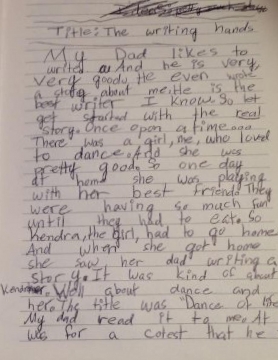 Title: The writing hands
My Dad likes to
writed a And he is very
very good. He even wrote
a story about me. He is the
best writer I know. So let
get started with the real
story. Once opon a time...
There was a girl, me, who loved
to dance. And she was
pretty good. So one day
at home she was playing
with her best friend. They
were having so much fun
until they had to eat. So
kendra, the girl, had to go home
And when she got home
she saw her dad writing a
story. It was kind of about
Kendra. Well about dance and
her. The title was "Dance of the
My dad read it to me. At
was for a cotest that he